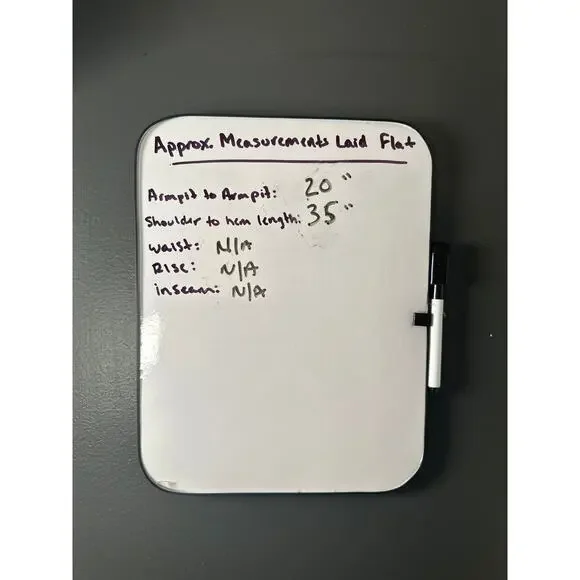 Approx. Measurements Laid Flat
Armpit to Armpit: 20"
Shoulder to hem length: 35"
waist: N/A
Rise: N/A
inseam: N/A